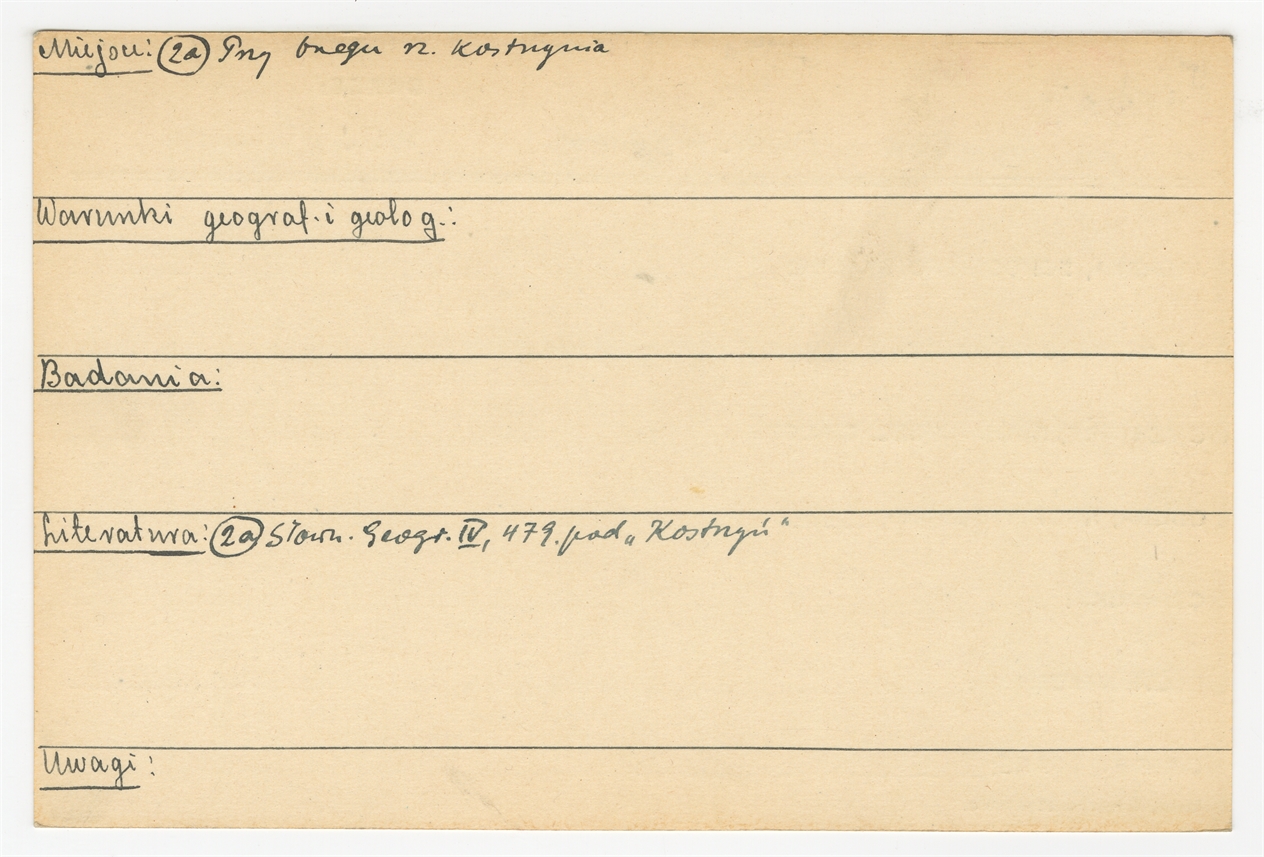 Miejsce: (2a) Przy brzegu rz. Kostrzynia
Warunki geograf. i geolog.:
Badania:
Literatura: (2a) Słown. Geogr. IV, 479. pod „Kostrzyń“
Uwagi: